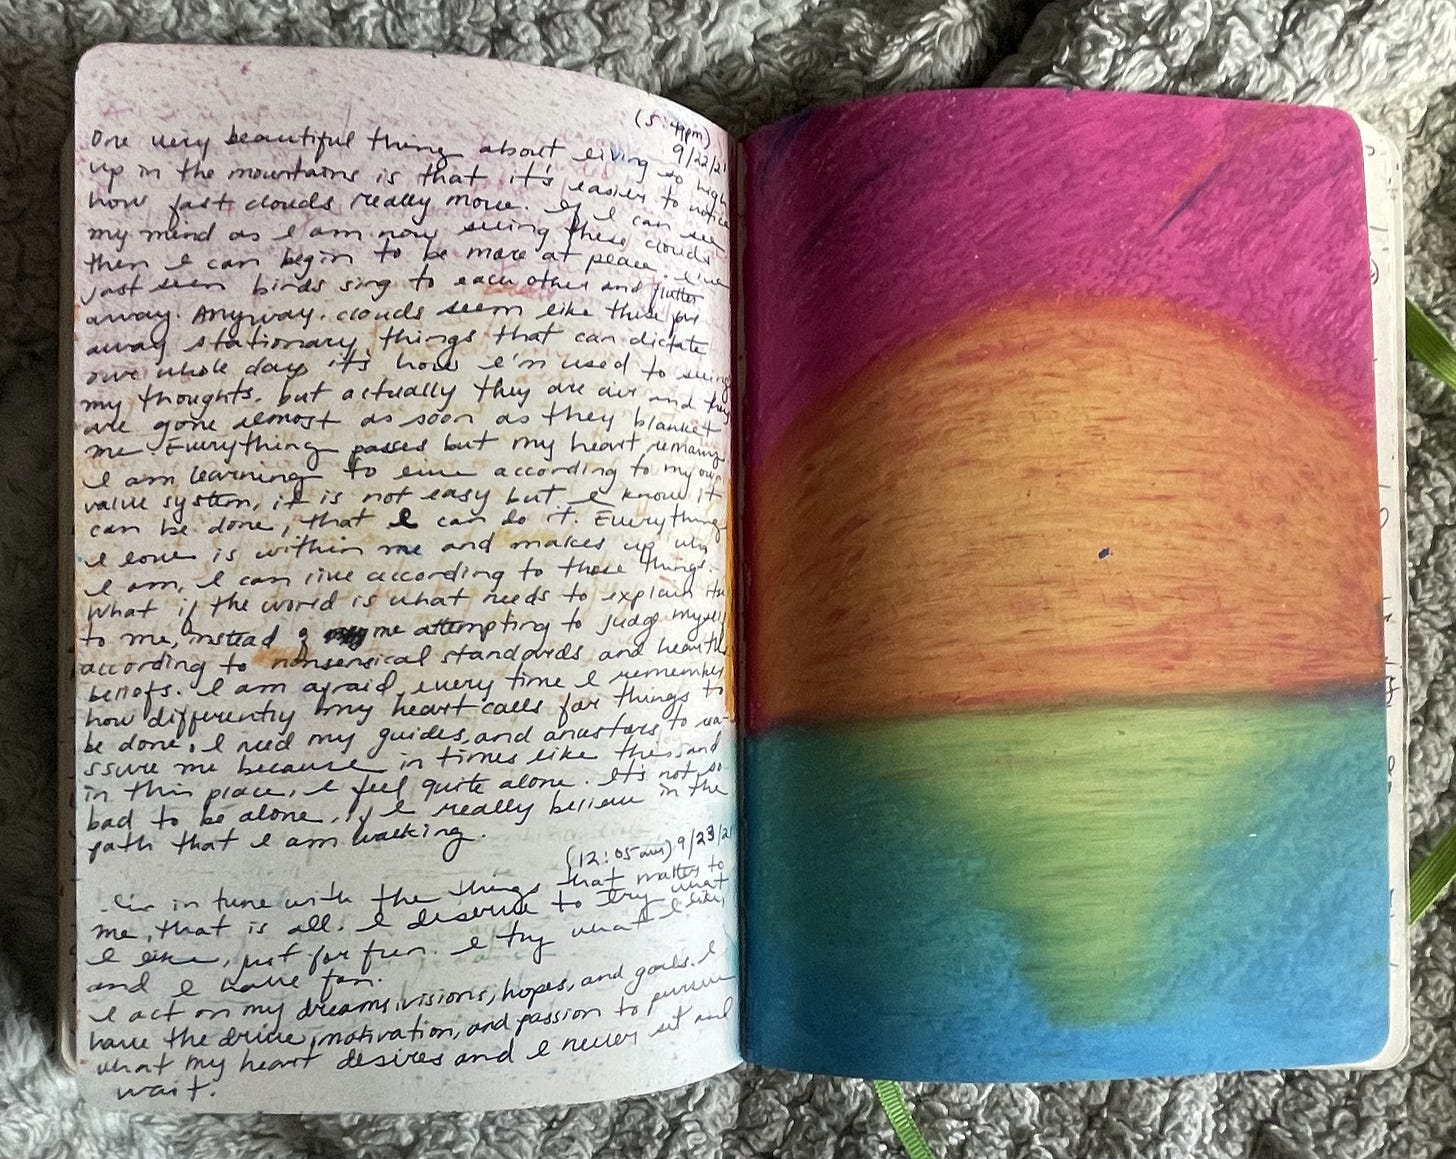 (5:44pm)
9/22/21
One very beautiful thing about living so high
up in the mountains is that it's easier to notice
how fast clouds really move. If I can see
my mind as I am now seeing these clouds
then I can begin to be more at peace. I've
just seen birds sing to each other and flutter
away. Anyway. clouds seem like these far
away stationary things that can dictate
our whole day it's how I'm used to seeing
my thoughts. but actually they are air and they
are gone almost as soon as they blanket
me. Everything passes but my heart remains
I am learning to live according to my own
value system, it is not easy but I know it
can be done, that I can do it. Everything
I love is within me and makes up why
I am, I can live according to those things.
What if the world is what needs to explain its
to me, instead of me attempting to judge myself
according to nonsensical standards and heartless
beliefs. I am afraid, every time I remember
how differently my heart calls for things to
be done. I need my guides, and ancestors to rea-
ssure me because in times like these and
in this place, I feel quite alone. It's not so
bad to be alone, if I really believe in the
path that I am walking.
(12:05am) 9/23/21
Live in tune with the things that matter to
me, that is all. I deserve to try what
I like, just for fun. I try what I like,
and I have fun.
I act on my dreams, visions, hopes, and goals. I
have the drive, motivation, and passion to pursue
what my heart desires and I never sit and
wait.